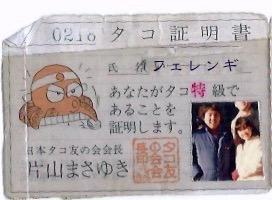 0218 タコ証明書
氏 様 フェレンギ
あなたがタコ特級で
あることを
証明します。
日本タコ友の会会長
片山まさゆき
タコ友
の会会
長印